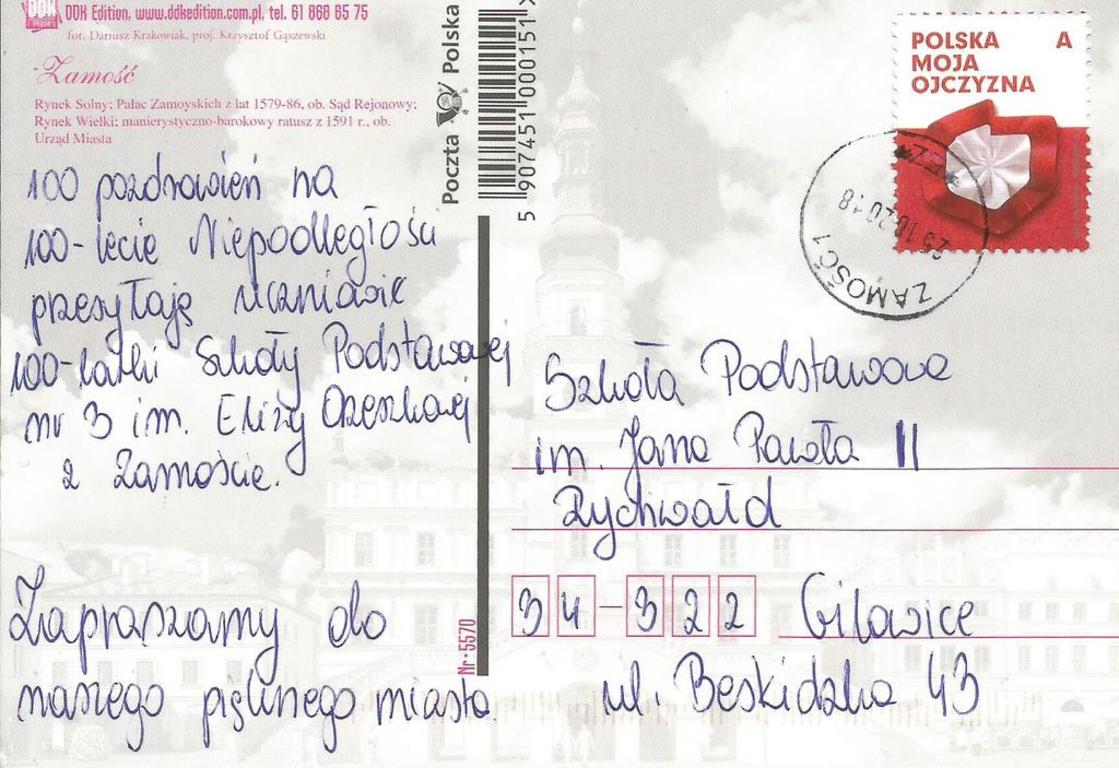 DDK Edition, www.ddkedition.com.pl, tel. 61 868 65 75
fot. Dariusz Krakowiak, proj. Krzysztof Gąszewski
Zamość
Rynek Solny; Pałac Zamoyskich z lat 1579-86, ob. Sąd Rejonowy;
Rynek Wielki; manierystyczno-barokowy ratusz z 1591 r., ob.
Urząd Miasta
100 pozdrowień na
100-lecie Niepodległości
przesyłają uczniowie
100-latki Szkoły Podstawowej
nr 3 im. Elizy Orzeszkowej
z Zamościa.
Zapraszamy do
naszego pięknego miasta.
Poczta Polska
5 907451 000151 >
Nr-5570
POLSKA A
MOJA
OJCZYZNA
ZAMOŚĆ 1
25.10.2018
Szkoła Podstawowa
im. Jana Pawła II
Rychwałd
34-322 Gilowice
ul. Beskidzka 43